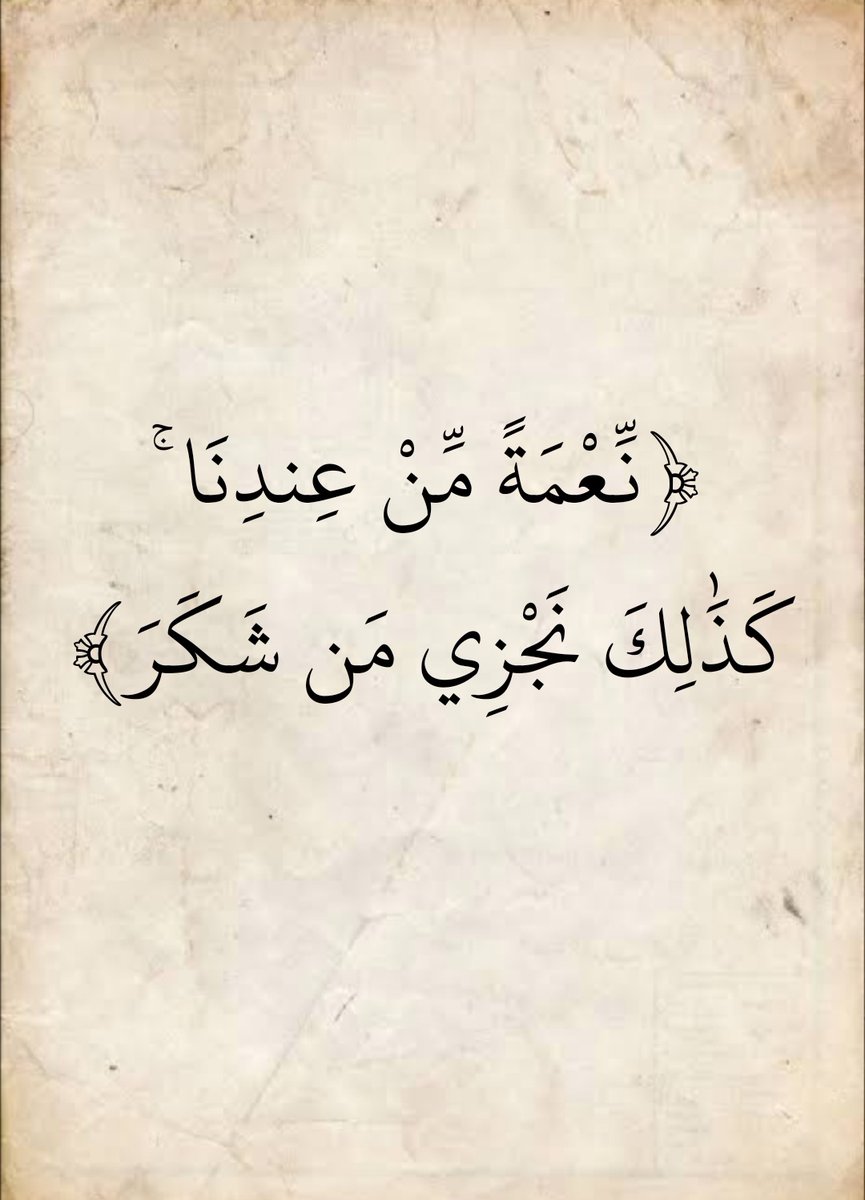 ﴿نِّعْمَةً مِّنْ عِندِنَا ۚ
كَذَٰلِكَ نَجْزِي مَن شَكَرَ﴾